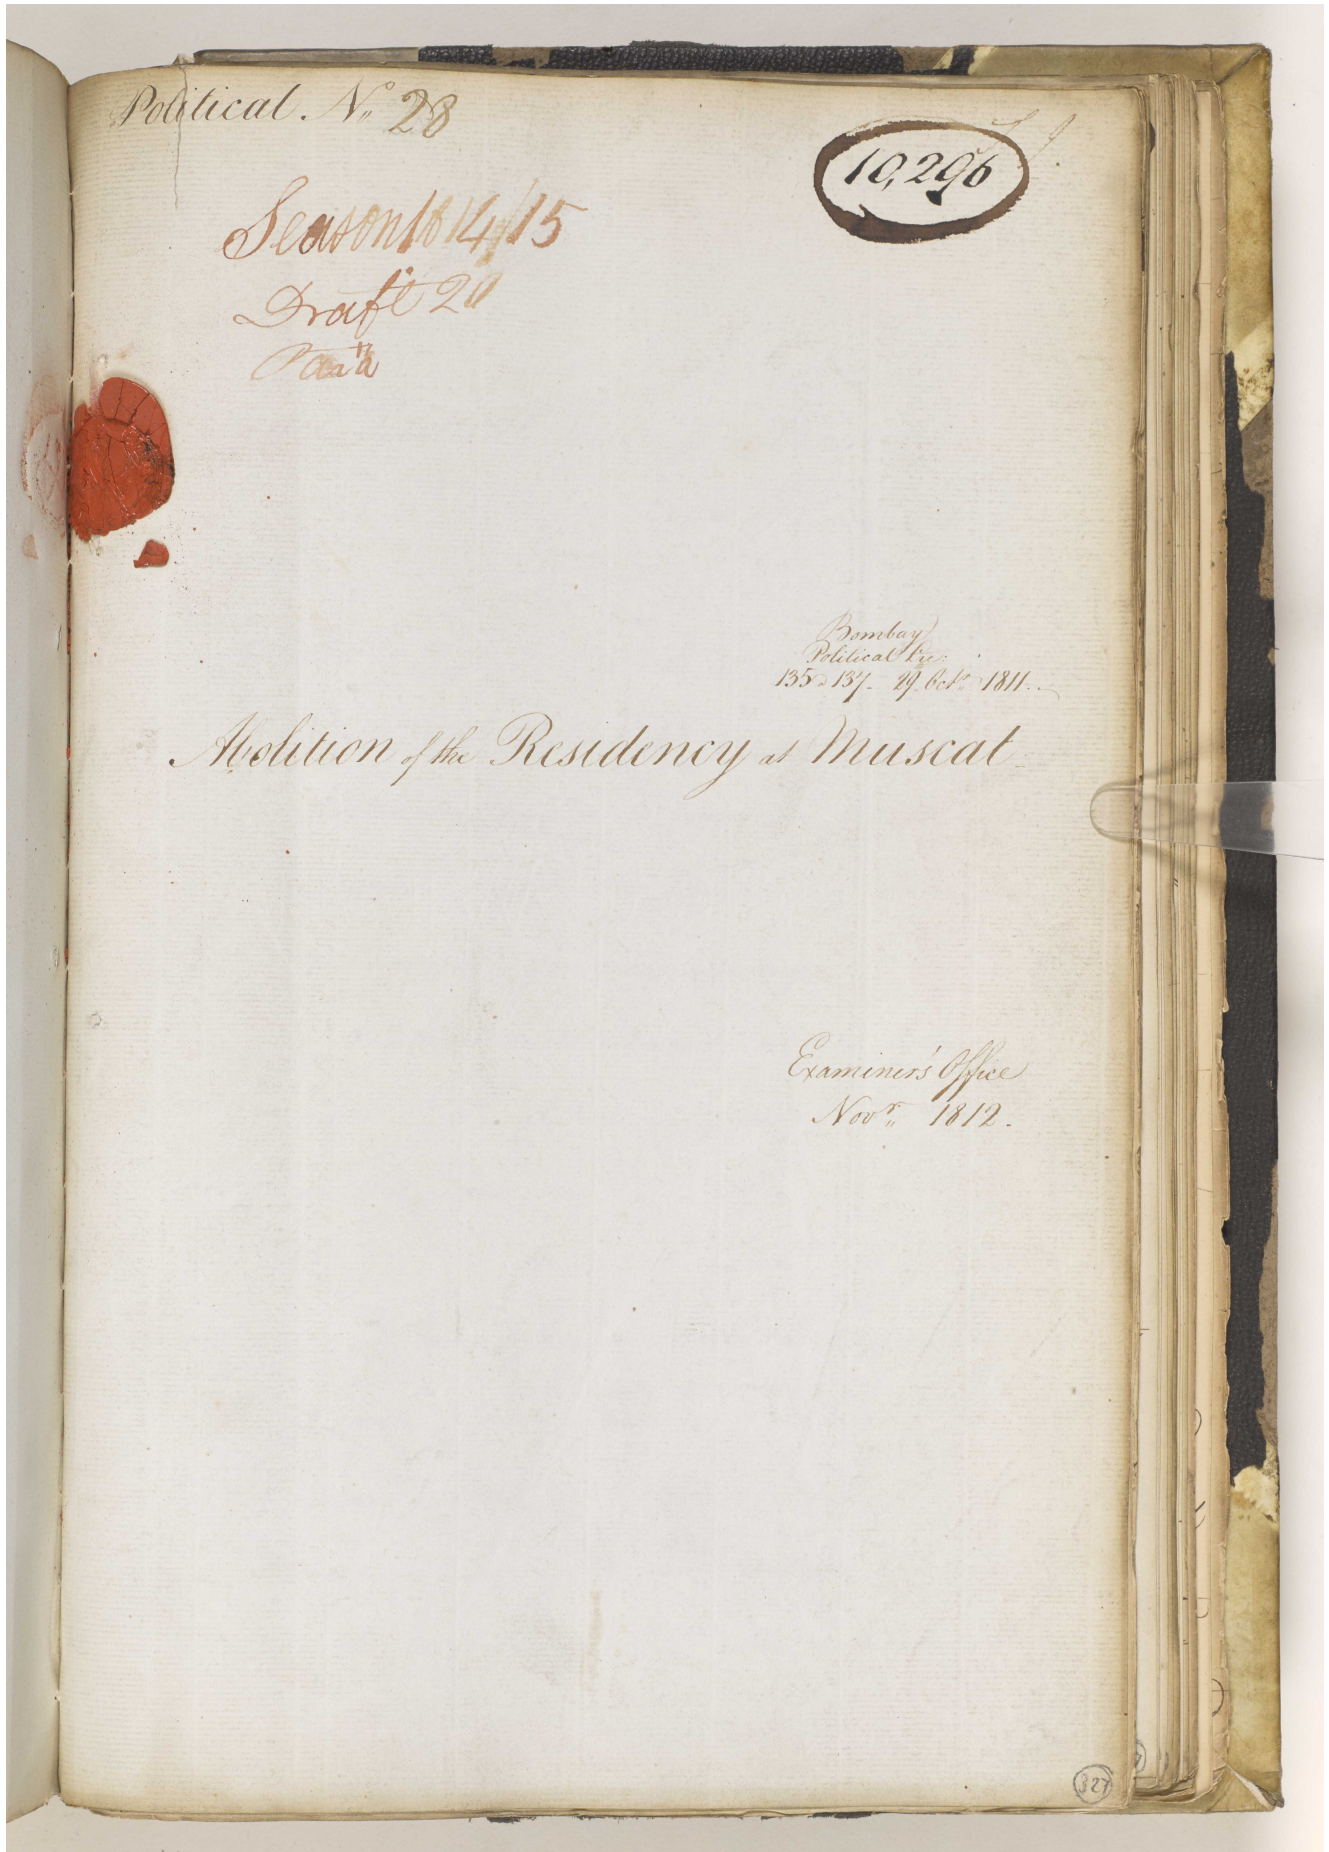 Political N.º 28
10,296
Season 1814/15
Draft 20
Bombay
Political Dre:
135 @ 137. 29 Octr. 1811.
Abolition of the Residency at Muscat
Examiner's Office
Novr. 1812.
327